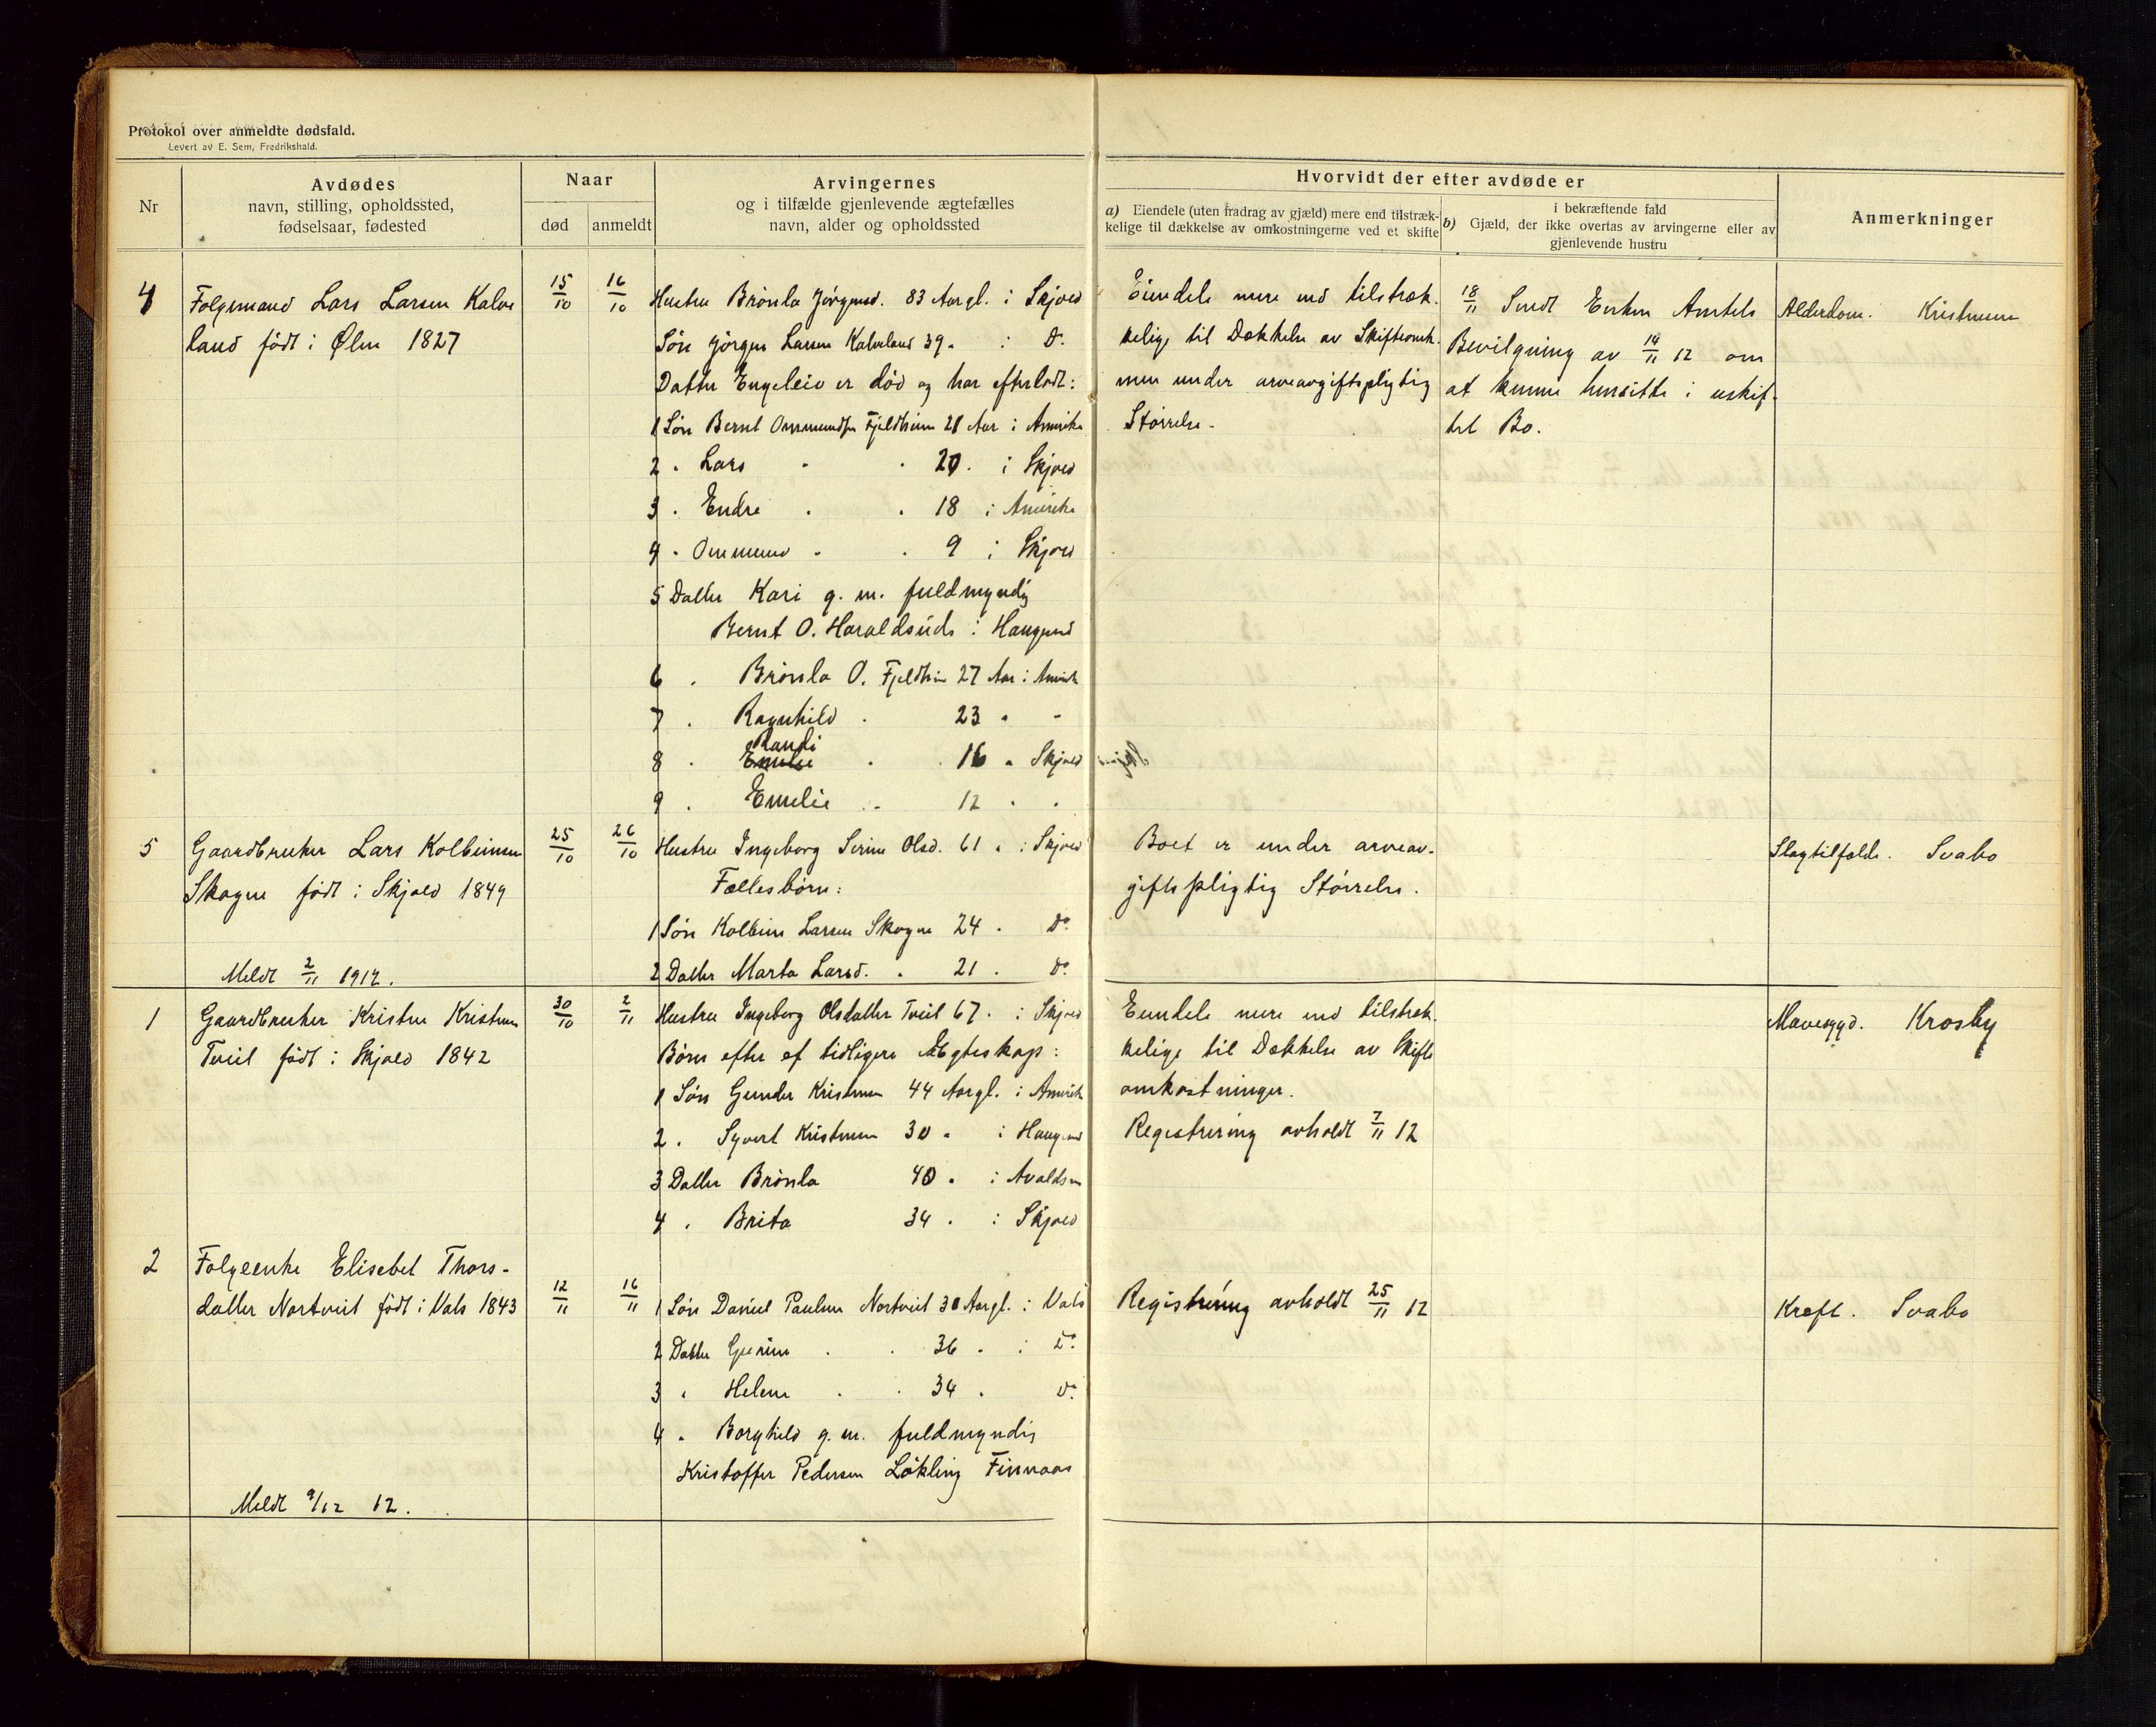 Protokol over anmeldte dødsfald.
Levert av E. Sem, Fredrikshald.
Nr
Avdødes
navn, stilling, opholdssted,
fødselsaar, fødested
Naar
død
anmeldt
Arvingernes
og i tilfælde gjenlevende ægtefælles
navn, alder og opholdssted
Hvorvidt der efter avdøde er
a) Eiendele (uten fradrag av gjæld) mere end tilstræk-
kelige til dækkelse av omkostningerne ved et skifte
i bekræftende fald
b) Gjæld, der ikke overtas av arvingerne eller av
gjenlevende hustru
Anmerkninger
4
Folgemand Lars Larsen Kalve
land født i Ølen 1827
15/10
16/10
Hustru Brønla Jørgensd. 83 Aargl. i Skjold
Søn Jørgen Larsen Kalveland 39 " : Do
Datter Engeleiv er død og har efterladt:
1 Søn Bernt Ommundsen Fjeldheim 21 Aar i Amerika
2 " Lars " " 20 " i Skjold
3 " Endre " " 18 i Amerika
4 " Ommund " " 9 i Skjold
5 Datter Kari g. m. fuldmyndig
Bernt O. Haraldseide i Haugesund
6 " Brønla O. Fjeldheim 27 Aar i Amerika
7 " Ragnhild " 23 " "
Randi
8 " Emelie " 16 " Skjold
9 " Emelie " 12 " "
Eiendele mere end tilstræk-
kelige til Dækkelse av Skifteomk.
men under arveavgiftspligtig
Størrelse.
18/11 Sendt Enken Amtets
Bevilgning av 14/11 12 om
at kunne hensitte i uskif-
tet Bo.
Alderdom. Kristensen
5
Gaardbruker Lars Kolbeinsen
Skogne født i Skjold 1849
25/10
26/10
Hustru Ingeborg Serine Olsd. 61 " i Skjold
Fællesbørn:
1 Søn Kolbein Larsen Skogne 24 " Do
2 Datter Marta Larsd. " 21 " Do
Boet er under arveav-
giftspligtig Størrelse.
Slagtilfælde. Svabo
Meldt 2/11 1912.
1
Gaardbruker Kristen Kristensen
Tveit født i Skjold 1842
30/10
2/11
Hustru Ingeborg Olsdatter Tveit 67 " i Skjold
Børn efter et tidligere Ægteskap:
1 Søn Gunder Kristensen 44 Aargl. i Amerika
2 " Syvert Kristensen 30 " i Haugesund
3 Datter Brønla 40 " i Avaldsn
4 " Brita 34 " i Skjold
Eiendele mere end tilstræk-
kelige til Dækkelse av Skifte
omkostninger.
Registrering avholdt 7/11 12
Mavesygd. Krosby
2
Folgeenke Elisebet Thors-
datter Nortveit født i Vats 1843
12/11
16/11
1 Søn Daniel Paulsen Nortveit 30 Aargl. i Vats
2 Datter Gurine " " 36 " i Do
3 " Helene " " 34 " Do
4 " Borghild g. m. fuldmyndig
Kristoffer Pedersen Løkling Finnaas
Registrering avholdt 25/11 12
Kræft. Svabo
Meldt 9/12 12.